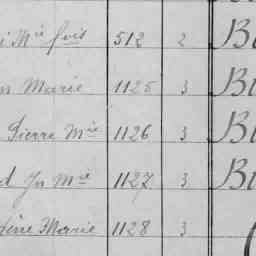 i Mie fois 512 2 B
n Marie 1125 3 B
Pierre Mie 1126 3 B
d Jn Mie 1127 3 B
Marie 1128 3